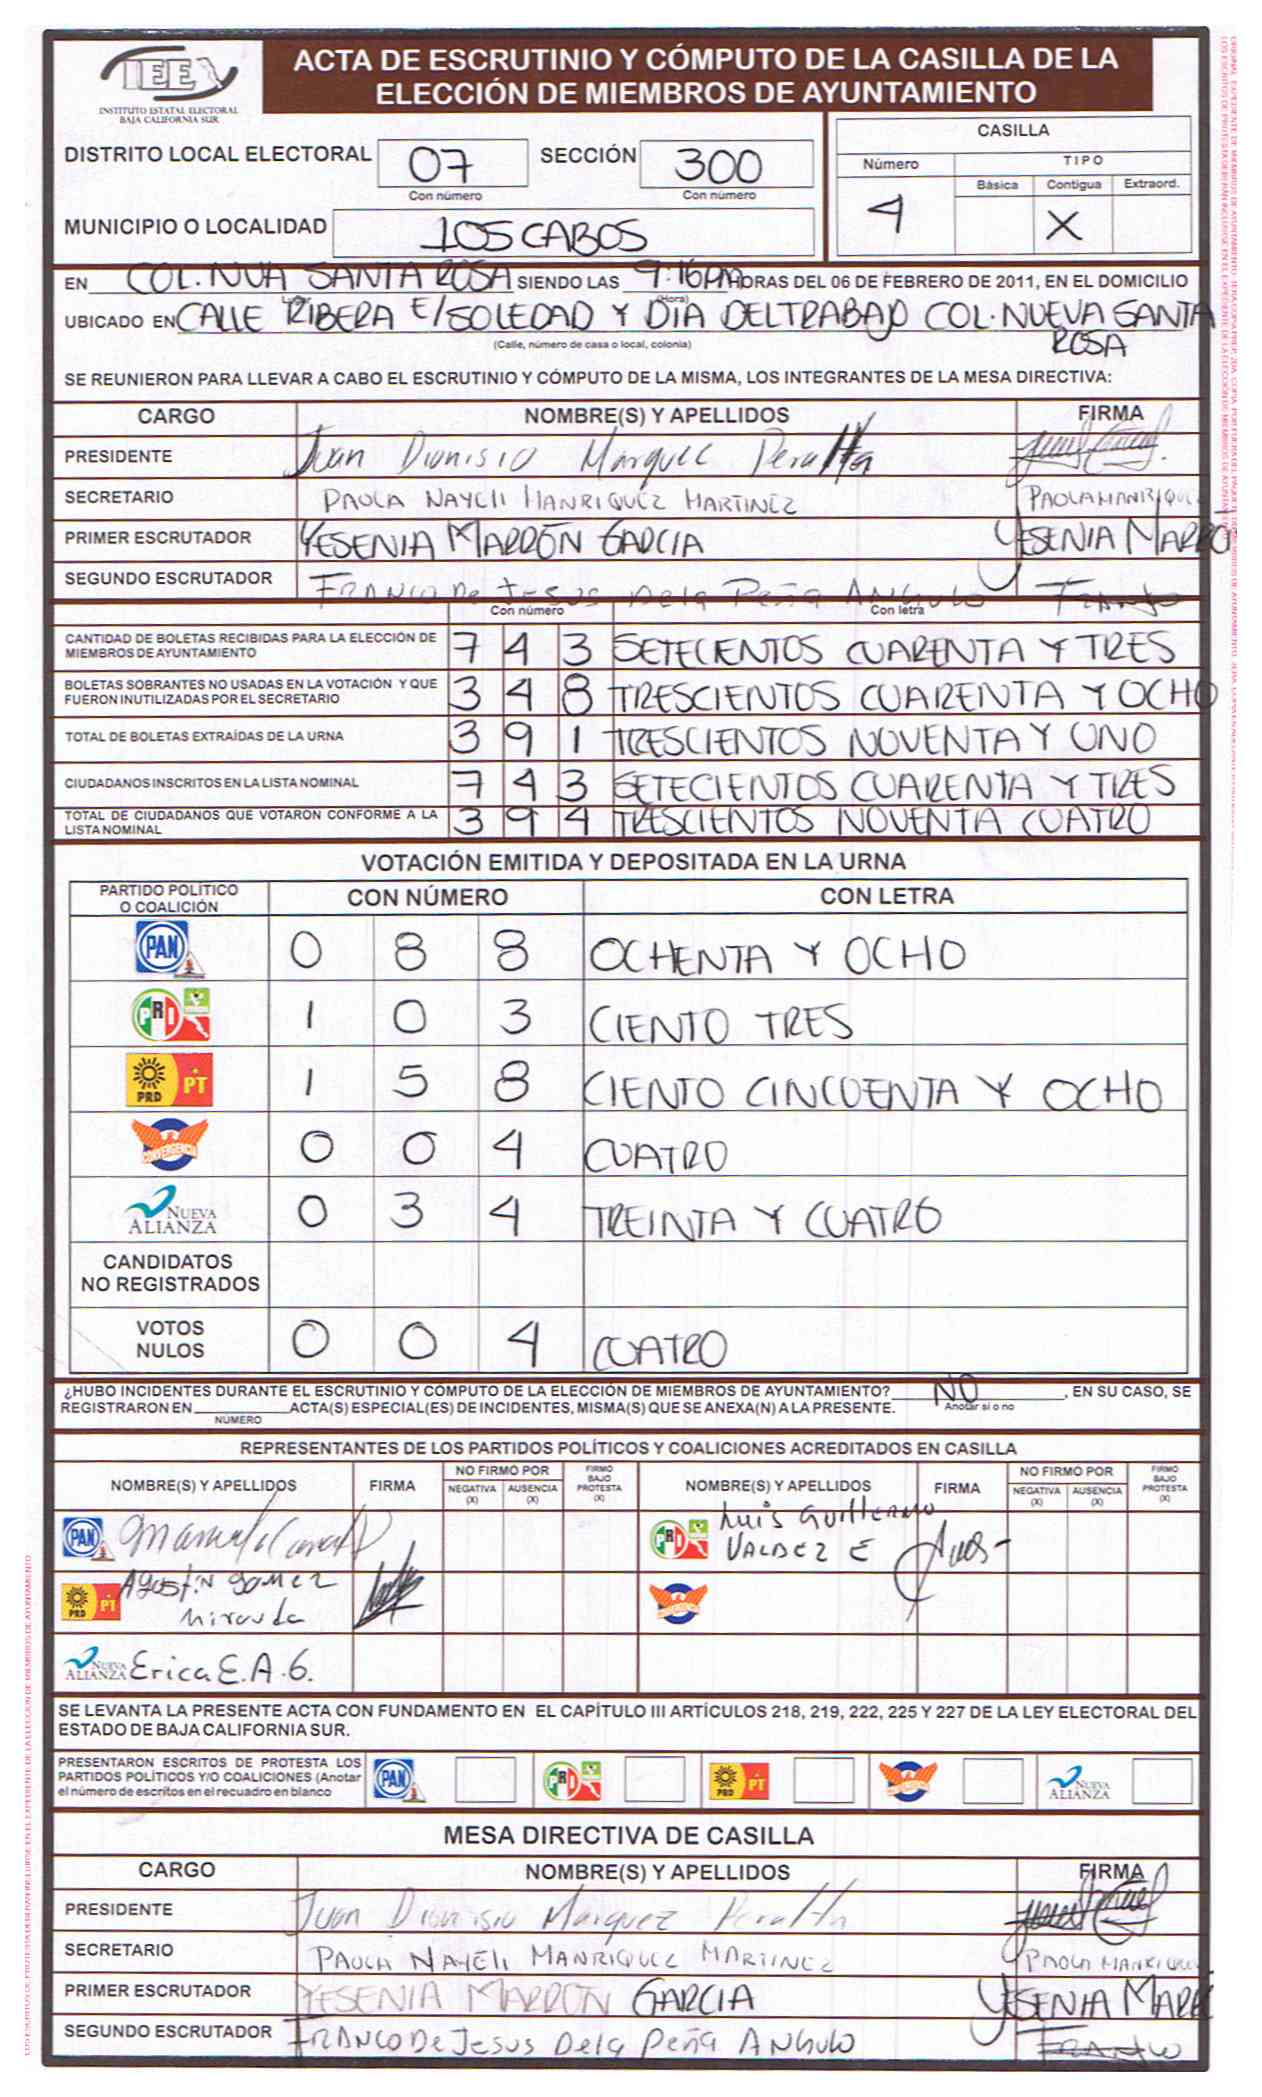 IEE
INSTITUTO ESTATAL ELECTORAL
BAJA CALIFORNIA SUR
ACTA DE ESCRUTINIO Y CÓMPUTO DE LA CASILLA DE LA
ELECCIÓN DE MIEMBROS DE AYUNTAMIENTO
DISTRITO LOCAL ELECTORAL 07 SECCIÓN 300
Con número Con número
MUNICIPIO O LOCALIDAD LOS CABOS
CASILLA
Número TIPO
Básica Contigua Extraord.
4 X
EN COL. NVA SANTA ROSA SIENDO LAS 9:16PM HORAS DEL 06 DE FEBRERO DE 2011, EN EL DOMICILIO
(Hora)
UBICADO EN CALLE RIBERA E/SOLEDAD Y DIA DEL TRABAJO COL. NUEVA SANTA
ROSA
(Calle, número de casa o local, colonia)
SE REUNIERON PARA LLEVAR A CABO EL ESCRUTINIO Y CÓMPUTO DE LA MISMA, LOS INTEGRANTES DE LA MESA DIRECTIVA:
CARGO NOMBRE(S) Y APELLIDOS FIRMA
PRESIDENTE Juan Dionisio Marquez Peralta
SECRETARIO PAOLA NAYELI MANRIQUEZ MARTINEZ PAOLA MANRIQUE
PRIMER ESCRUTADOR YESENIA MARRÓN GARCIA YESENIA MARRÓ
SEGUNDO ESCRUTADOR FRANCO De Jesus Dela Peña ANGULO FRANCO
Con número Con letra
CANTIDAD DE BOLETAS RECIBIDAS PARA LA ELECCIÓN DE
MIEMBROS DE AYUNTAMIENTO 7 4 3 SETECIENTOS CUARENTA Y TRES
BOLETAS SOBRANTES NO USADAS EN LA VOTACIÓN Y QUE
FUERON INUTILIZADAS POR EL SECRETARIO 3 4 8 TRESCIENTOS CUARENTA Y OCHO
TOTAL DE BOLETAS EXTRAÍDAS DE LA URNA 3 9 1 TRESCIENTOS NOVENTA Y UNO
CIUDADANOS INSCRITOS EN LA LISTA NOMINAL 7 4 3 SETECIENTOS CUARENTA Y TRES
TOTAL DE CIUDADANOS QUE VOTARON CONFORME A LA
LISTA NOMINAL 3 9 4 TRESCIENTOS NOVENTA CUATRO
VOTACIÓN EMITIDA Y DEPOSITADA EN LA URNA
PARTIDO POLÍTICO
O COALICIÓN CON NÚMERO CON LETRA
PAN 0 8 8 OCHENTA Y OCHO
PRI 1 0 3 CIENTO TRES
PRD PT 1 5 8 CIENTO CINCUENTA Y OCHO
CONVERGENCIA 0 0 4 CUATRO
NUEVA ALIANZA 0 3 4 TREINTA Y CUATRO
CANDIDATOS
NO REGISTRADOS
VOTOS
NULOS 0 0 4 CUATRO
¿HUBO INCIDENTES DURANTE EL ESCRUTINIO Y CÓMPUTO DE LA ELECCIÓN DE MIEMBROS DE AYUNTAMIENTO? NO , EN SU CASO, SE
Anotar si o no
REGISTRARON EN ACTA(S) ESPECIAL(ES) DE INCIDENTES, MISMA(S) QUE SE ANEXA(N) A LA PRESENTE.
NUMERO
REPRESENTANTES DE LOS PARTIDOS POLÍTICOS Y COALICIONES ACREDITADOS EN CASILLA
NOMBRE(S) Y APELLIDOS FIRMA NO FIRMÓ POR NEGATIVA (X) AUSENCIA (X) FIRMÓ BAJO PROTESTA (X) NOMBRE(S) Y APELLIDOS FIRMA NO FIRMÓ POR NEGATIVA (X) AUSENCIA (X) FIRMÓ BAJO PROTESTA (X)
PAN PRI Luis Guillermo
VALDEZ E
PRD PT Agustin gomez
Miranda
NUEVA ALIANZA Erica E.A.G.
SE LEVANTA LA PRESENTE ACTA CON FUNDAMENTO EN EL CAPÍTULO III ARTÍCULOS 218, 219, 222, 225 Y 227 DE LA LEY ELECTORAL DEL
ESTADO DE BAJA CALIFORNIA SUR.
PRESENTARON ESCRITOS DE PROTESTA LOS
PARTIDOS POLÍTICOS Y/O COALICIONES (Anotar
el número de escritos en el recuadro en blanco
PAN PRI PRD PT NUEVA ALIANZA
MESA DIRECTIVA DE CASILLA
CARGO NOMBRE(S) Y APELLIDOS FIRMA
PRESIDENTE Juan Dionisio Marquez Peralta
SECRETARIO PAOLA NAYELI MANRIQUEZ MARTINEZ PAOLA MANRIQUE
PRIMER ESCRUTADOR YESENIA MARRON GARCIA YESENIA MARR
SEGUNDO ESCRUTADOR FRANCO De Jesus Dela Peña ANGULO FRANCO